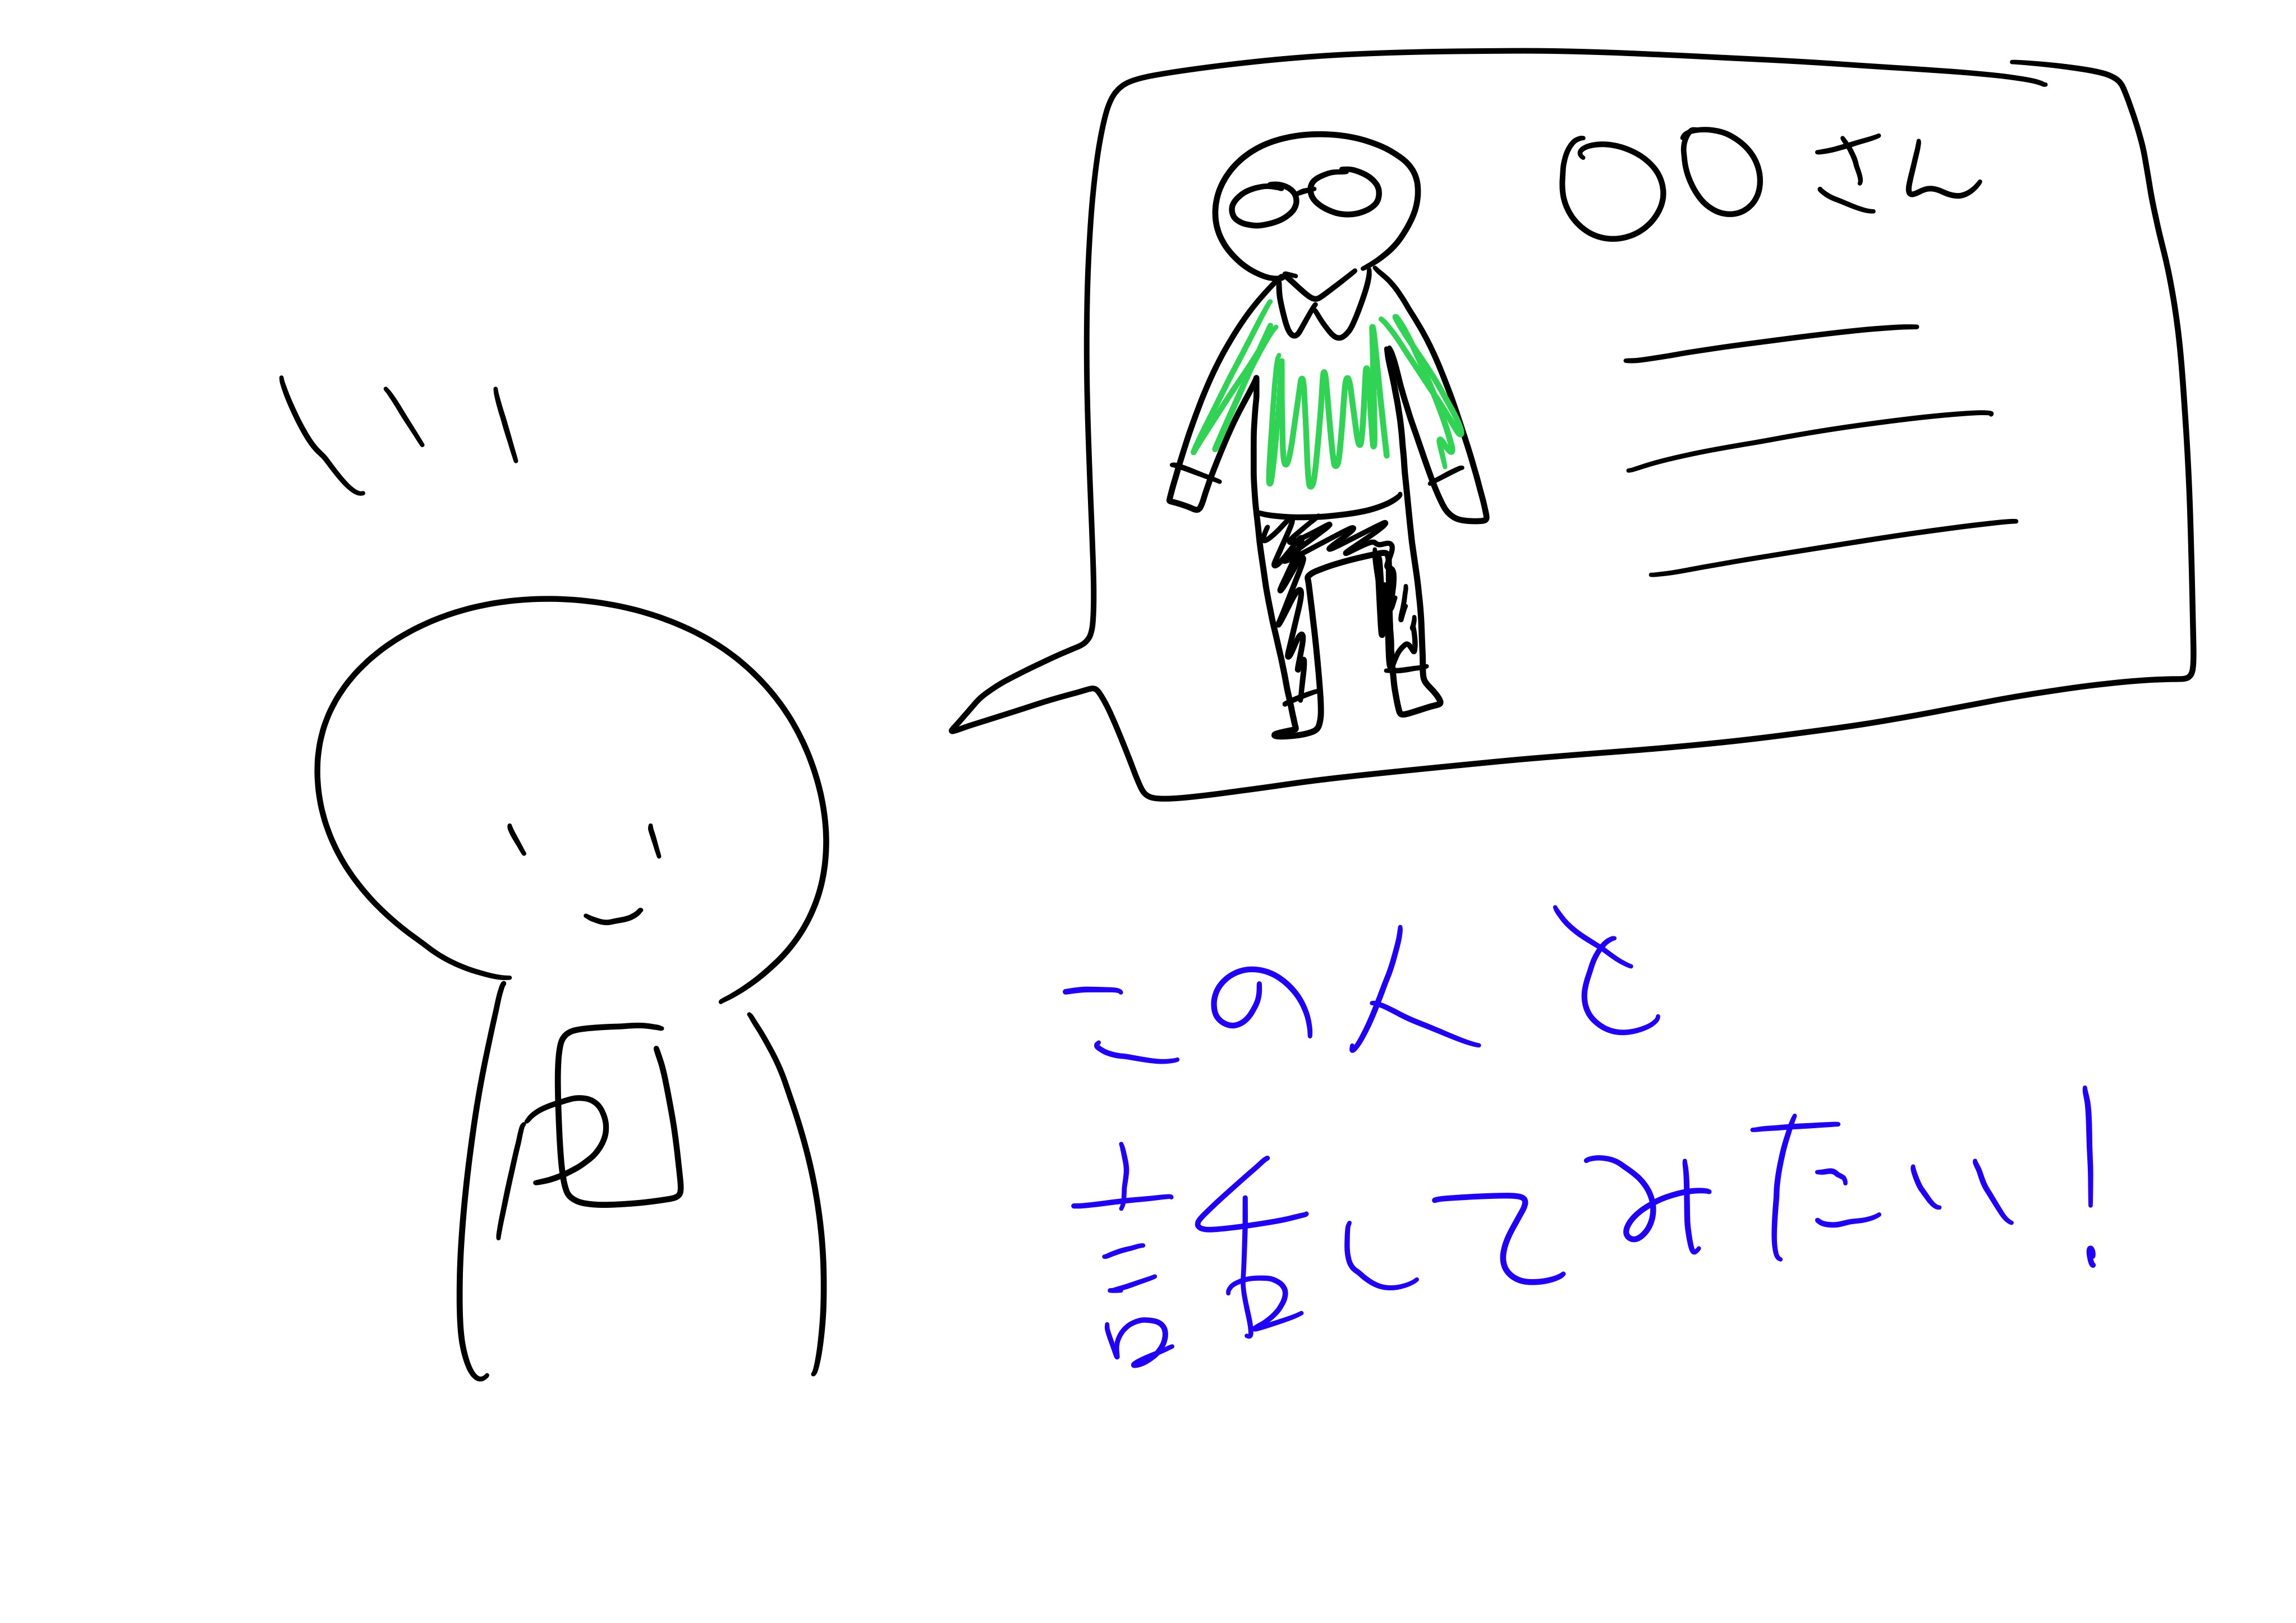 ○○さん
この人と
話してみたい!